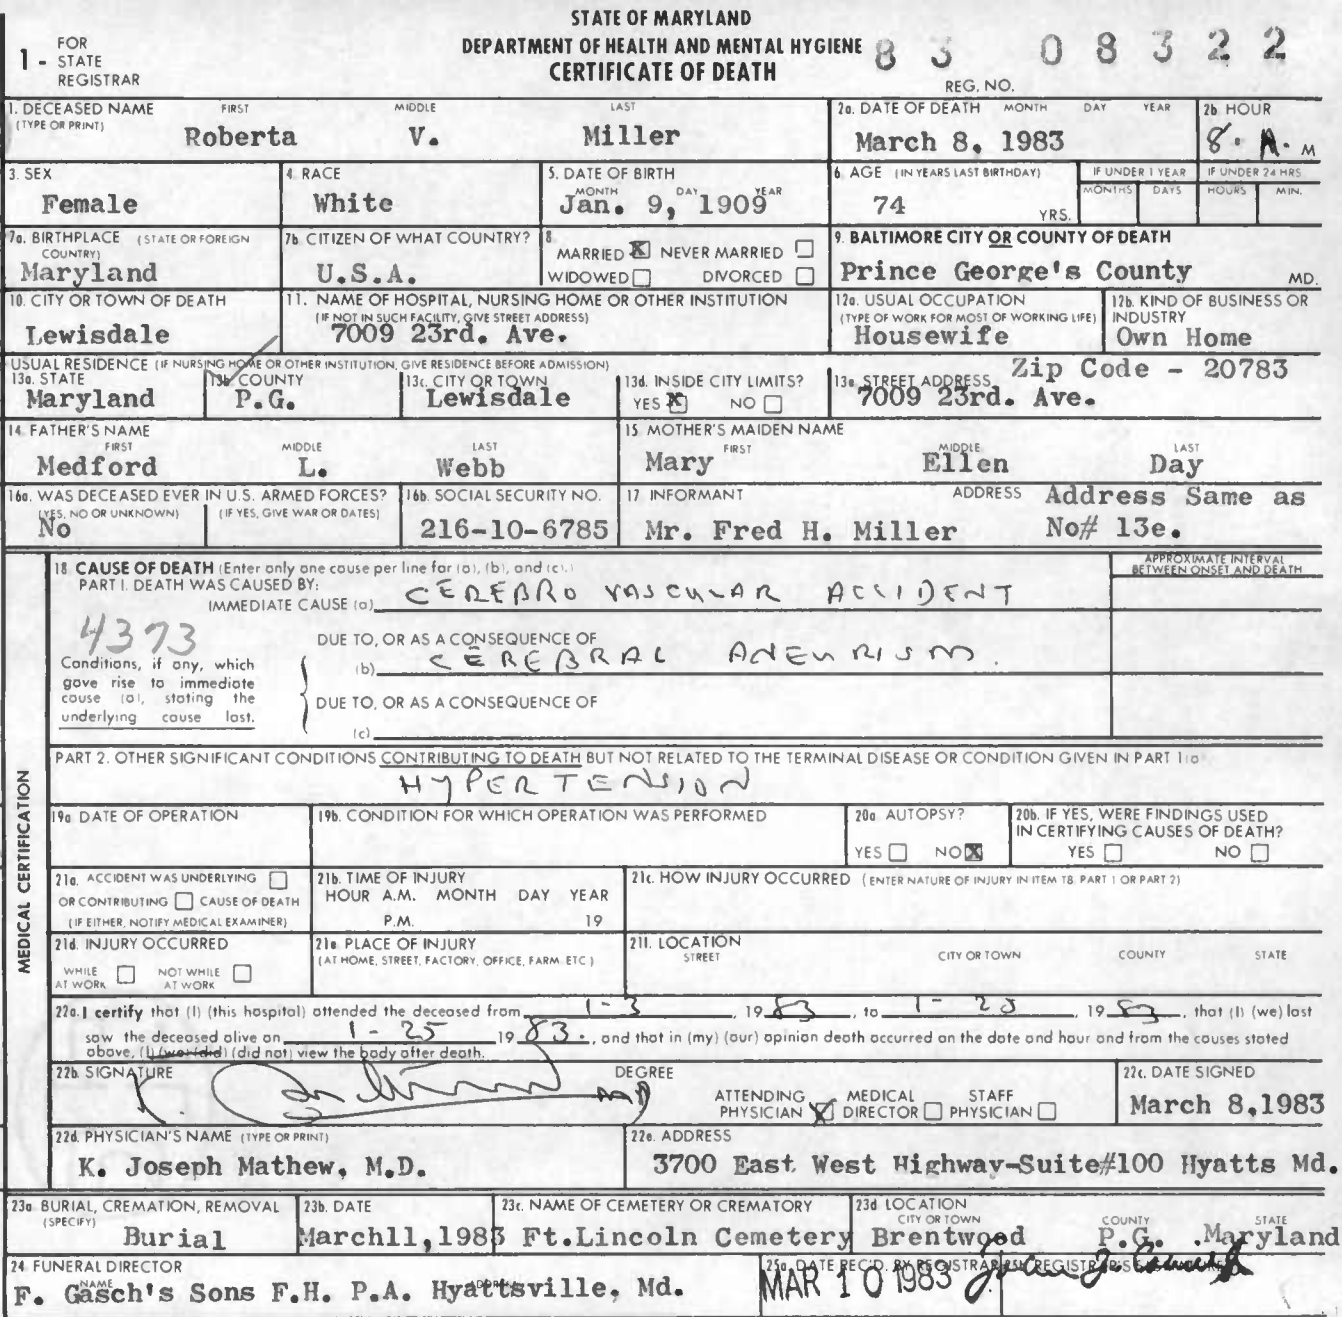 STATE OF MARYLAND
DEPARTMENT OF HEALTH AND MENTAL HYGIENE
CERTIFICATE OF DEATH
1 - FOR STATE REGISTRAR
83 08322
REG. NO.
1. DECEASED NAME (TYPE OR PRINT) FIRST MIDDLE LAST
Roberta V. Miller
2a. DATE OF DEATH MONTH DAY YEAR
March 8, 1983
2b. HOUR
8. A. M
3. SEX
Female
4. RACE
White
5. DATE OF BIRTH MONTH DAY YEAR
Jan. 9, 1909
6. AGE (IN YEARS LAST BIRTHDAY)
74 YRS.
IF UNDER 1 YEAR MONTHS DAYS
IF UNDER 24 HRS HOURS MIN.
7a. BIRTHPLACE (STATE OR FOREIGN COUNTRY)
Maryland
7b. CITIZEN OF WHAT COUNTRY?
U.S.A.
8. MARRIED X NEVER MARRIED
WIDOWED DIVORCED
9. BALTIMORE CITY OR COUNTY OF DEATH
Prince George's County MD.
10. CITY OR TOWN OF DEATH
Lewisdale
11. NAME OF HOSPITAL, NURSING HOME OR OTHER INSTITUTION
(IF NOT IN SUCH FACILITY, GIVE STREET ADDRESS)
7009 23rd. Ave.
12a. USUAL OCCUPATION
(TYPE OF WORK FOR MOST OF WORKING LIFE)
Housewife
12b. KIND OF BUSINESS OR INDUSTRY
Own Home
USUAL RESIDENCE (IF NURSING HOME OR OTHER INSTITUTION, GIVE RESIDENCE BEFORE ADMISSION)
13a. STATE
Maryland
13b. COUNTY
P.G.
13c. CITY OR TOWN
Lewisdale
13d. INSIDE CITY LIMITS?
YES X NO
13e. STREET ADDRESS Zip Code - 20783
7009 23rd. Ave.
14. FATHER'S NAME
FIRST MIDDLE LAST
Medford L. Webb
15 MOTHER'S MAIDEN NAME
FIRST MIDDLE LAST
Mary Ellen Day
16a. WAS DECEASED EVER IN U.S. ARMED FORCES?
(YES, NO OR UNKNOWN) (IF YES, GIVE WAR OR DATES)
No
16b. SOCIAL SECURITY NO.
216-10-6785
17 INFORMANT ADDRESS Address Same as
Mr. Fred H. Miller No# 13e.
MEDICAL CERTIFICATION
18. CAUSE OF DEATH (Enter only one cause per line for (a), (b), and (c).)
APPROXIMATE INTERVAL BETWEEN ONSET AND DEATH
PART I. DEATH WAS CAUSED BY:
IMMEDIATE CAUSE (a) CEREBRO VASCULAR ACCIDENT
4373
Conditions, if any, which gave rise to immediate cause (a), stating the underlying cause last.
DUE TO, OR AS A CONSEQUENCE OF
(b) CEREBRAL ANEURISM.
DUE TO, OR AS A CONSEQUENCE OF
(c)
PART 2. OTHER SIGNIFICANT CONDITIONS CONTRIBUTING TO DEATH BUT NOT RELATED TO THE TERMINAL DISEASE OR CONDITION GIVEN IN PART 1(a)
HYPERTENSION
19a. DATE OF OPERATION
19b. CONDITION FOR WHICH OPERATION WAS PERFORMED
20a. AUTOPSY?
YES NO X
20b. IF YES, WERE FINDINGS USED IN CERTIFYING CAUSES OF DEATH?
YES NO
21a. ACCIDENT WAS UNDERLYING
OR CONTRIBUTING CAUSE OF DEATH
(IF EITHER, NOTIFY MEDICAL EXAMINER)
21b. TIME OF INJURY
HOUR A.M. MONTH DAY YEAR
P.M. 19
21c. HOW INJURY OCCURRED (ENTER NATURE OF INJURY IN ITEM 18, PART 1 OR PART 2)
21d. INJURY OCCURRED
WHILE AT WORK NOT WHILE AT WORK
21e. PLACE OF INJURY
(AT HOME, STREET, FACTORY, OFFICE, FARM, ETC.)
21f. LOCATION
STREET CITY OR TOWN COUNTY STATE
22a. I certify that (I) (this hospital) attended the deceased from 1-3, 1983, to 1-25 1983, that (I) (we) last
saw the deceased alive on 1-25 1983., and that in (my) (our) opinion death occurred on the date and hour and from the causes stated
above, (I) (we) (did) (did not) view the body after death.
22b. SIGNATURE DEGREE
MD
ATTENDING PHYSICIAN X MEDICAL DIRECTOR STAFF PHYSICIAN
22c. DATE SIGNED
March 8,1983
22d. PHYSICIAN'S NAME (TYPE OR PRINT)
K. Joseph Mathew, M.D.
22e. ADDRESS
3700 East West Highway-Suite#100 Hyatts Md.
23a. BURIAL, CREMATION, REMOVAL (SPECIFY)
Burial
23b. DATE
March11,1983
23c. NAME OF CEMETERY OR CREMATORY
Ft.Lincoln Cemetery
23d LOCATION
CITY OR TOWN COUNTY STATE
Brentwood P.G. .Maryland
24. FUNERAL DIRECTOR
NAME ADDRESS
F. Gasch's Sons F.H. P.A. Hyattsville, Md.
25a. DATE REC'D. BY REGISTRAR
MAR 10 1983
REGISTRAR'S